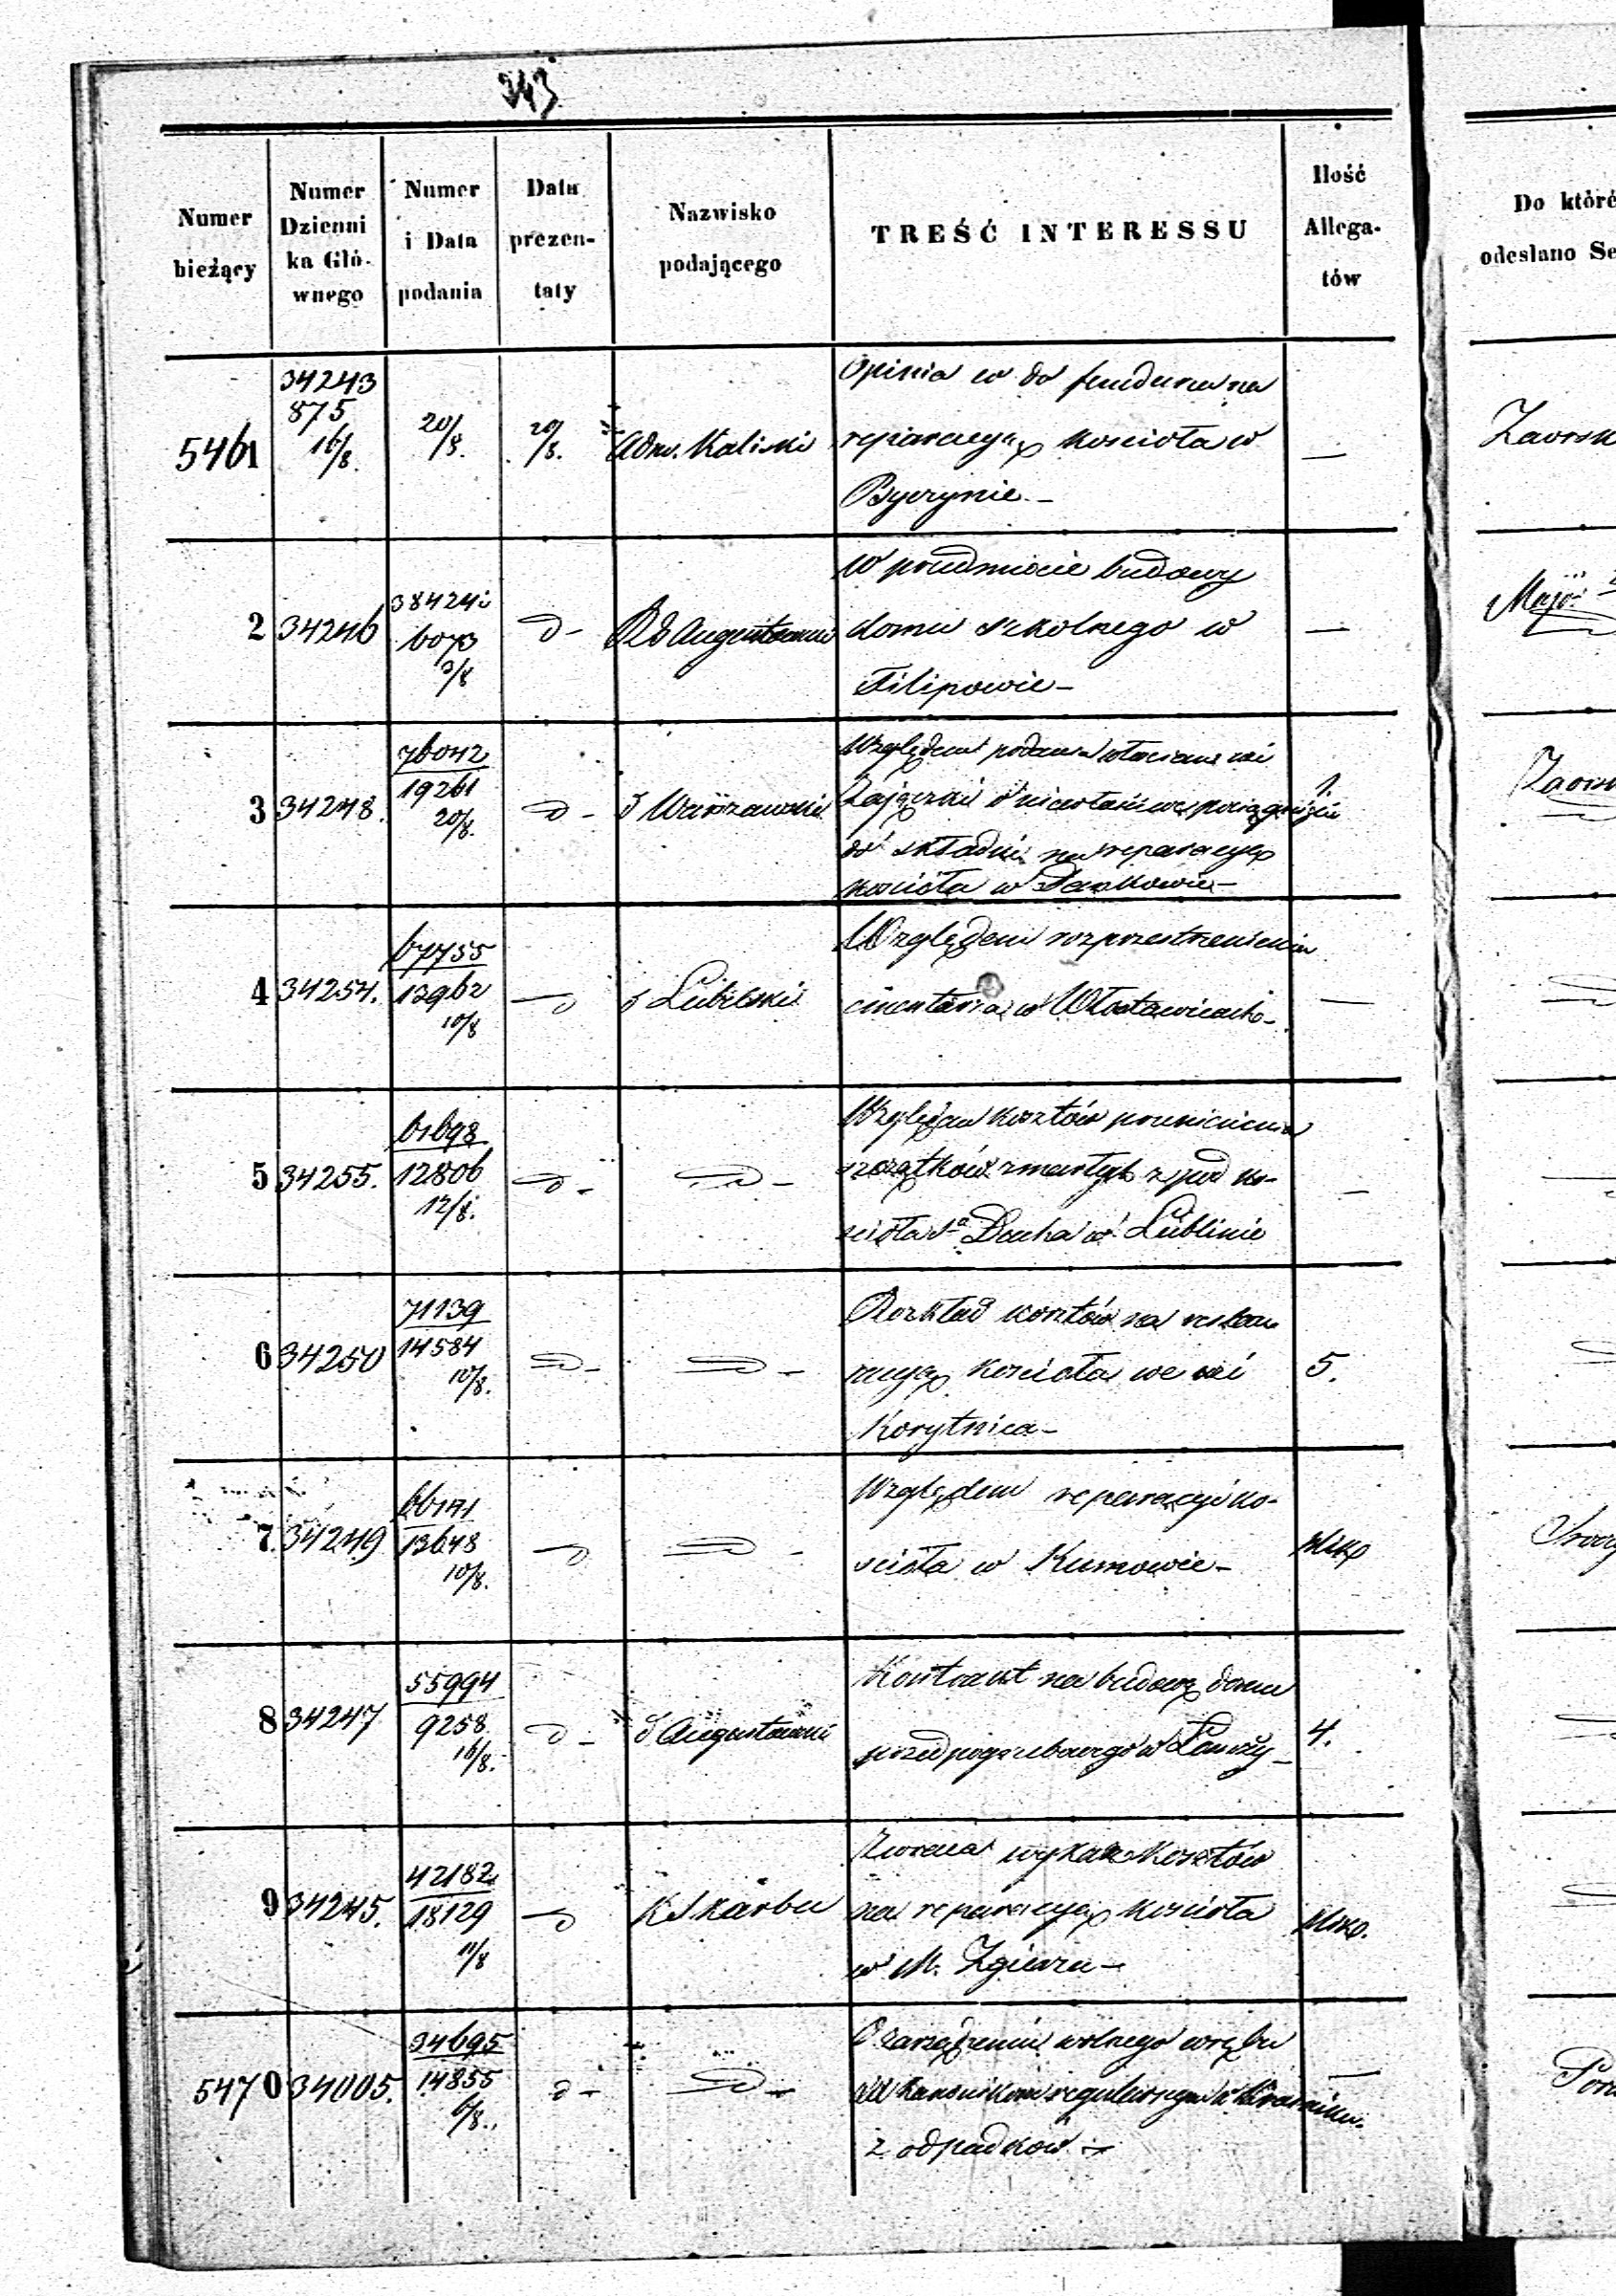 343
Numer bieżący
Numer Dzienni ka Głó- wnego
Numer i Data podania
Data prezen- taty
Nazwisko podającego
TREŚĆ INTERESSU
Ilość Allega- tów
Do któré
odesłano Se
5461
34243
875
16/8.
20/8.
20/8.
Adm. Kaliski
Opinia w do fundusu na
reparacyą kościoła w
Byczynie. –
—
Zawsk
2
34246
38424
6073
3/8
d –
Rd Augustowski
W przedmiocie budowy
domu szkolnego w
Filipowie –
—
3
34248.
76042
19261
20/8.
d –
d Warszawski
Względem podania włościan wsi
Zajączki o niewłaściwe pociągnięcie
do składki na reparacyą
kościoła w Dankowie –
1.
4
34254.
67755
13962
10/8
d
d Lubelski
Względem rozprzestrzenienia
cmentarza w Włostawicach –
—
5
34255.
61698
12806
12/8.
d –
d –
Względem kosztów przeniesienia
szczątków zmarłych z pod ko-
scioła Sgo Ducha w Lublinie
—
6
34250
71139
14584
10/8.
d –
d –
Rozkład kosztów na restau
racyą kościoła we wsi
Korytnica –
5.
7.
34249
66171
13648
10/8.
d
d –
Względem reparacyi ko-
scioła w Kumowie –
8
34247
55994
9258
16/8.
d –
d Augustowski
Kontrakt na budowę domu
przedpogrzebowego w Łomży –
4.
9
34245.
42182
18129
11/8
d
K Skarbu
Zwraca wykaz kosztów
na reparacyą kościoła
w M. Zgierzu –
5470
34005.
34695
14855
6/8.
d –
d –
O zarządzeniu wolnego wrębu
dla Kanoników regularnych w Kraśniku
z odpadków –
—